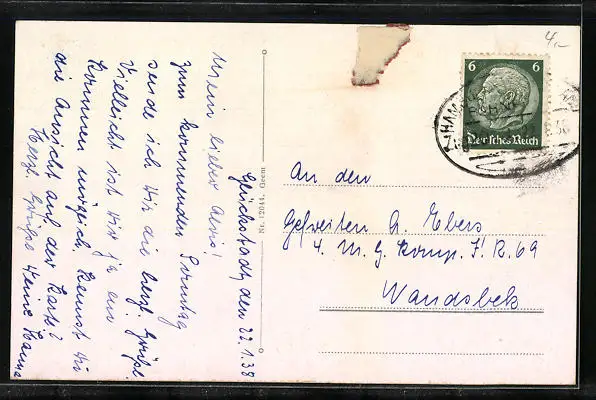 Glückstadt, den 22.1.38
Mein lieber Alois!
Zum kommenden Sonntag
sende ich Dir die herzl. Grüße.
Vielleicht ist Dir ja ein
Kommen möglich. Kennst Du
die Ansicht auf der Karte?
Herzl. Grüße Deine Hanna
Nr. 12044. Geem
4.–
6 6
Deutsches Reich
An den
Gefreiten A. Ebers
4. M. G. Komp. J. R. 69
Wandsbek